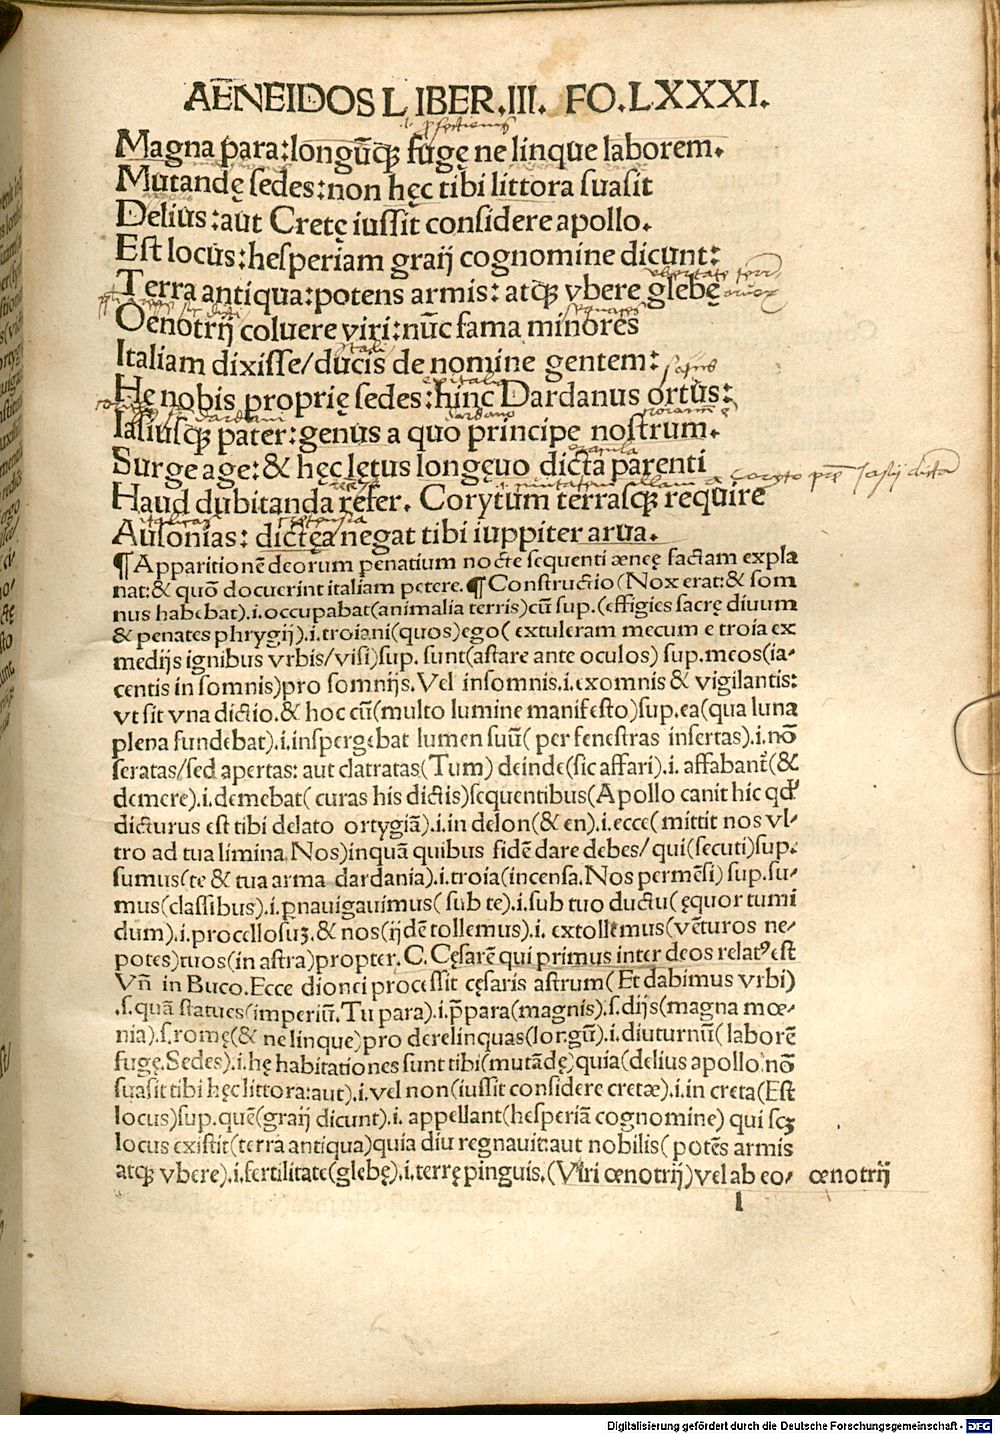 AENEIDOS LIBER.III. FO.LXXXI.
Magna para:longūq̃ fugę ne linque laborem.
Mutandę sedes:non hęc tibi littora suasit
Delius:aut Cretę iussit considere apollo.
Est locus:hesperiam graij cognomine dicunt:
Terra antiqua:potens armis:atq̃ vbere glebę
Oenotrij coluere viri:nūc fama minores
Italiam dixisse/ducis de nomine gentem:
He nobis proprię sedes:hinc Dardanus ortus:
Iasiusq̃ pater:genus a quo principe nostrum.
Surge age:& hęc letus longęuo dicta parenti
Haud dubitanda refer. Corytum terrasq̃ require
Ausonias: dictęa negat tibi iuppiter arua.
¶Apparitionē deorum penatium nocte sequenti æneę factam expla
nat:& quō docuerint italiam petere.¶Constructio(Nox erat:& som
nus habebat).i.occupabat(animalia terris)cū sup.(effigies sacrę diuum
& penates phrygij).i.troiani(quos)ego(extuleram mecum e troia ex
medijs ignibus vrbis/visi)sup. sunt(astare ante oculos) sup.meos(ia-
centis in somnis)pro somnijs.Vel insomnis.i.exomnis & vigilantis:
vt sit vna dictio.& hoc cū(multo lumine manifesto)sup.ea(qua luna
plena fundebat).i.inspergebat lumen suū(per fenestras insertas).i.nō
seratas/sed apertas: aut clatratas(Tum) deinde(sic affari).i.affabant᷑(&
demere).i.demebat(curas his dictis)sequentibus(Apollo canit hic qd̕
dicturus est tibi delato ortygiā).i.in delon(& en).i.ecce(mittit nos vl-
tro ad tua limina.Nos)inquā quibus fidē dare debes/qui(secuti)sup.
sumus(te & tua arma dardania).i.troia(incensa.Nos permēsi) sup.su-
mus(classibus).i.pnauigauimus(sub te).i.sub tuo ductu(ęquor tumi
dum).i.procellosuʒ.& nos(ijdē tollemus).i. extollemus(vēturos ne-
potes)tuos(in astra)propter.C.Cęsarē qui primus inter deos relatꝰ est
Vñ in Buco.Ecce dionei processit cęsaris astrum(Et dabimus vrbi)
.s.quā statues(imperiū.Tu para).i.p̄para(magnis).s.dijs(magna mœ-
nia).s.romę(& ne linque)pro derelinquas(lor.gū).i.diuturnū(laborē
fugę.Sedes).i.hę habitationes sunt tibi(mutādę)quia(delius apollo nō
suasit tibi hęc littora:aut).i.vel non(iussit considere cretæ).i.in creta(Est
locus)sup.quē(graij dicunt).i. appellant(hesperiā cognomine) qui scʒ
locus existit(terra antiqua)quia diu regnauit:aut nobilis(potēs armis
atq̃ vbere).i.fertilitate(glebę).i.terrę pinguis.(Viri œnotrij)vel ab eo- œnotrij
l
Digitalisierung gefördert durch die Deutsche Forschungsgemeinschaft - DFG